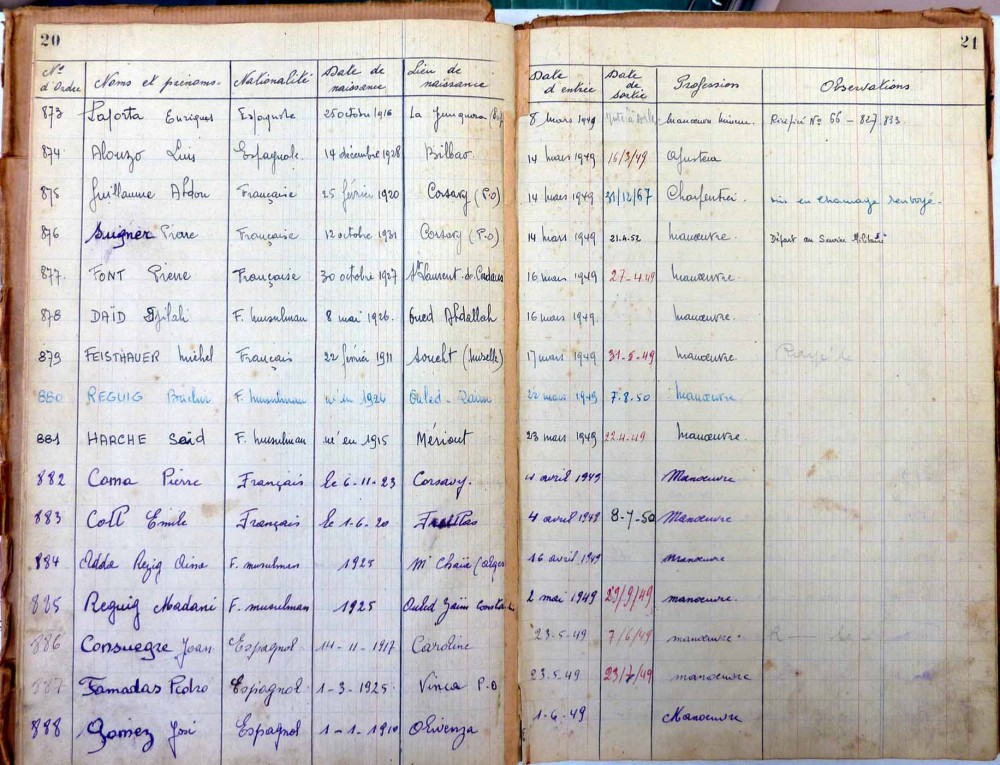 20 21
N° d'Ordre Noms et prénoms. Nationalité Date de naissance Lieu de naissance Date d'entrée Date de sortie Profession Observations
873 Laporta Enriques Espagnole 25 octobre 1916 La Junquera 8 mars 1949 manoeuvre mineur. Récépicé N° 66 - 827.833
874 Alonzo Luis Espagnole. 14 décembre 1928 Bilbao. 14 mars 1949 16/3/49 Ajusteur
875 Guillaume Abdon Française 25 février 1920 Corsavy (P-O) 14 mars 1949 31/12/67 Charpentier mis en chomage renvoyé.
876 Sugner Pierre Française 12 octobre 1931 Corsavy (P-O) 14 mars 1949 21.4.52 manœuvre. Départ au Service Militaire
877. FONT Pierre Française 30 octobre 1927 St Laurent. de. Cerdans 16 mars 1949 27-4.49 manœuvre.
878 DAÏD Djilali F. musulman 8 mai 1926. Oued Abdallah 16 mars 1949. manœuvre.
879 FEISTHAUER Michel Français 22 février 1911 Soucht (Moselle) 17 mars 1949 31-5-49 manœuvre
880 REGUIG F. musulman né en 1926 Ouled- 22 mars 1949 7.8.50 manœuvre
881 HARCHE Saïd F. musulman né en 1915 Mériout 23 mars 1949 22.4.49 manœuvre.
882 Coma Pierre Français le 6-11-23 Corsavy. 4 avril 1949 Manœuvre
883 Coll Emile Français le 1-6-20 4 avril 1949 8-7-50 Manœuvre
884 Adda Rezig Aissa F. musulman 1925 M'Chaïa (Alger 16 avril 1949 manœuvre
885 Reguig Madani F. musulman 1925 Ouled Zaïm 2 mai 1949 29/9/49 manœuvre.
886 Consuegre Joan Espagnol 14-11-1917 Caroline 23-5-49 7/6/49 manœuvre.
887 Famadas Pedro Espagnol 1-3-1925. Vinca P.O 23.5.49 23/7/49 manœuvre
888 Gomez José Espagnol 1-1-1910 Olivenza 1-6-49 Manœuvre